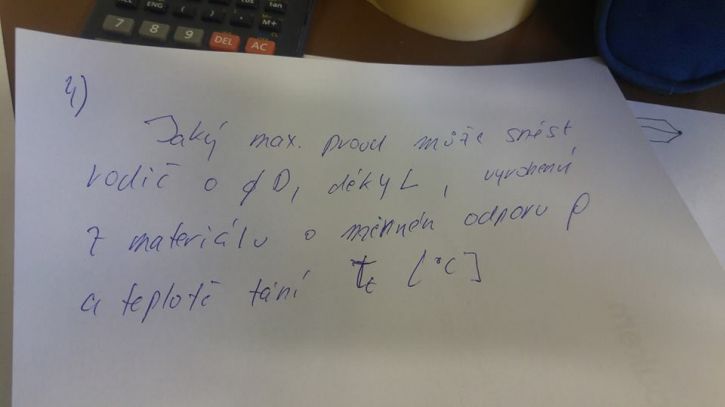 7 8 9 DEL AC
ENG
tan
M+
4)
Jaký max. proud může snést
vodič o ⌀D, délky L, vyrobený
z materiálu o měrném odporu ρ
a teplotě tání Tt [°C]